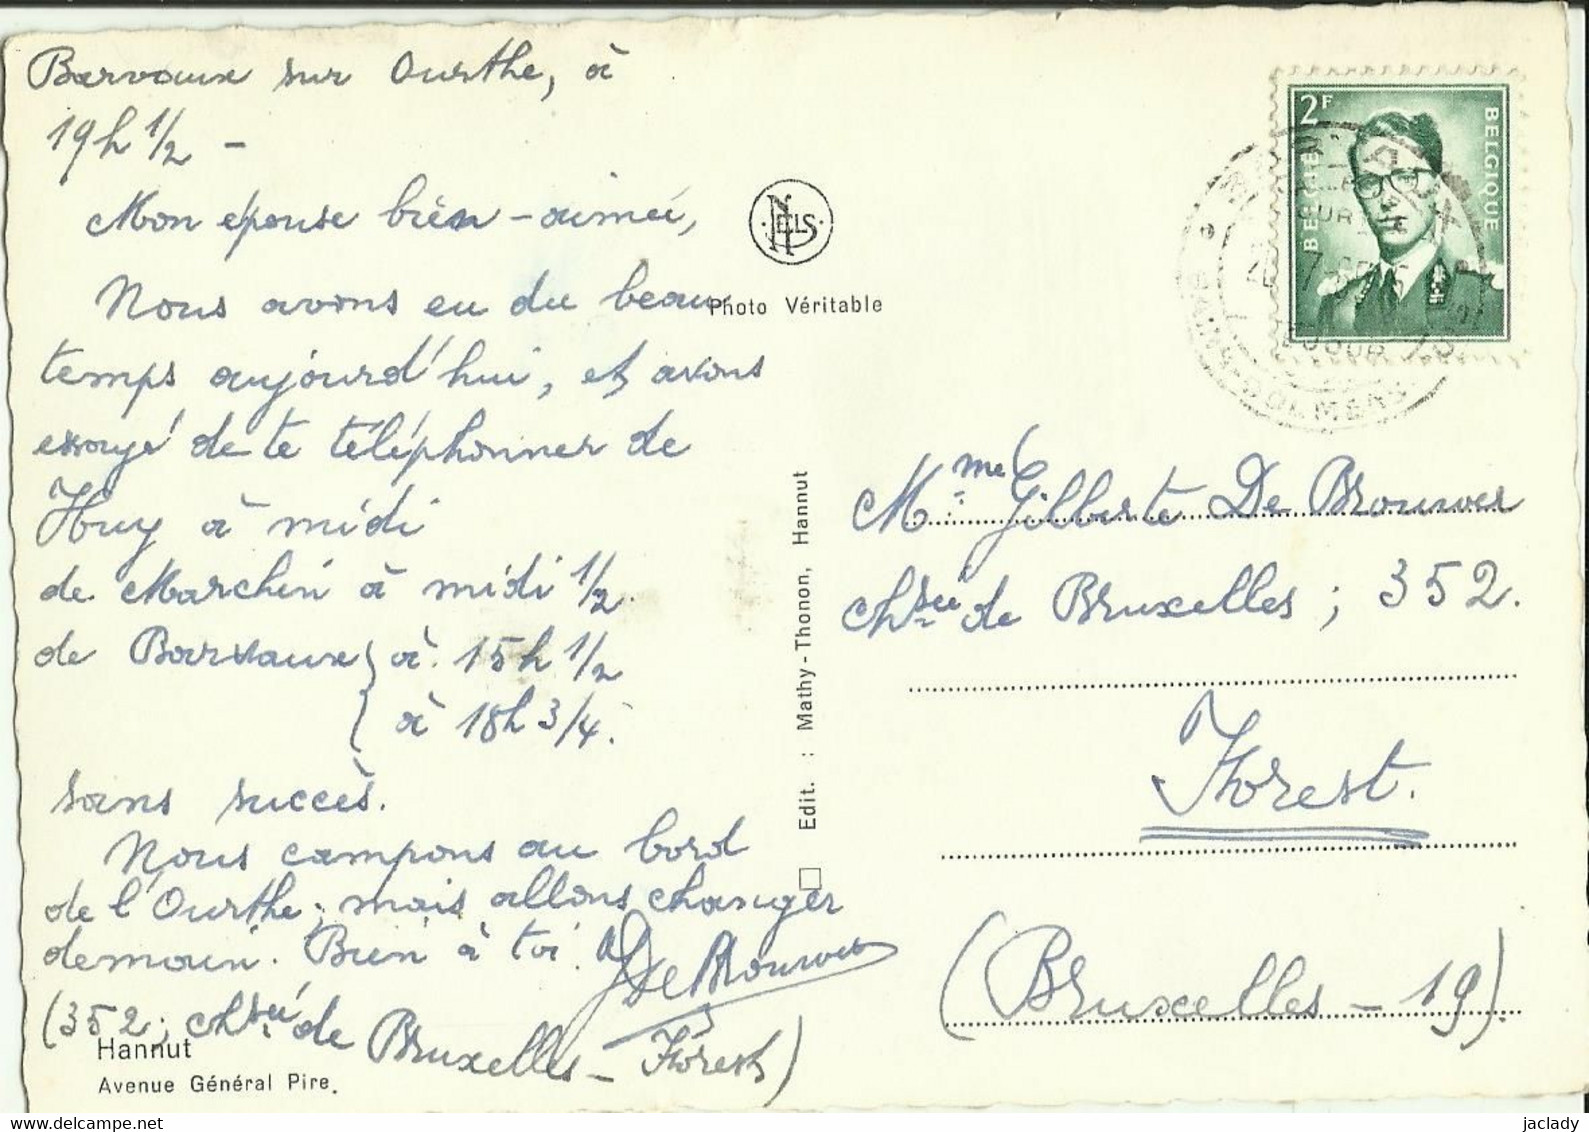 Barvaux sur Ourthe, à
19h 1/2 -
Mon épouse bien-aimée,
Nous avons eu du beau
temps aujourd'hui, et avons
essayé de te téléphonner de
Huy à midi
de Marchin à midi 1/2
de Barvaux à 15h 1/2
à 18h 3/4.
sans succès.
Nous campons au bord
de l'Ourthe; mais allons changer
demain. Bien à toi.
De Brouwer
(352, chsée de Bruxelles - Forest)
Hannut
Avenue Général Pire.
NELS
Photo Véritable
Edit. : Mathy-Thonon, Hannut
2F
BELGIE BELGIQUE
Mme Gilberte De Brouwer
chsée de Bruxelles; 352.
Forest.
(Bruxelles - 19).
delcampe.net
jaclady